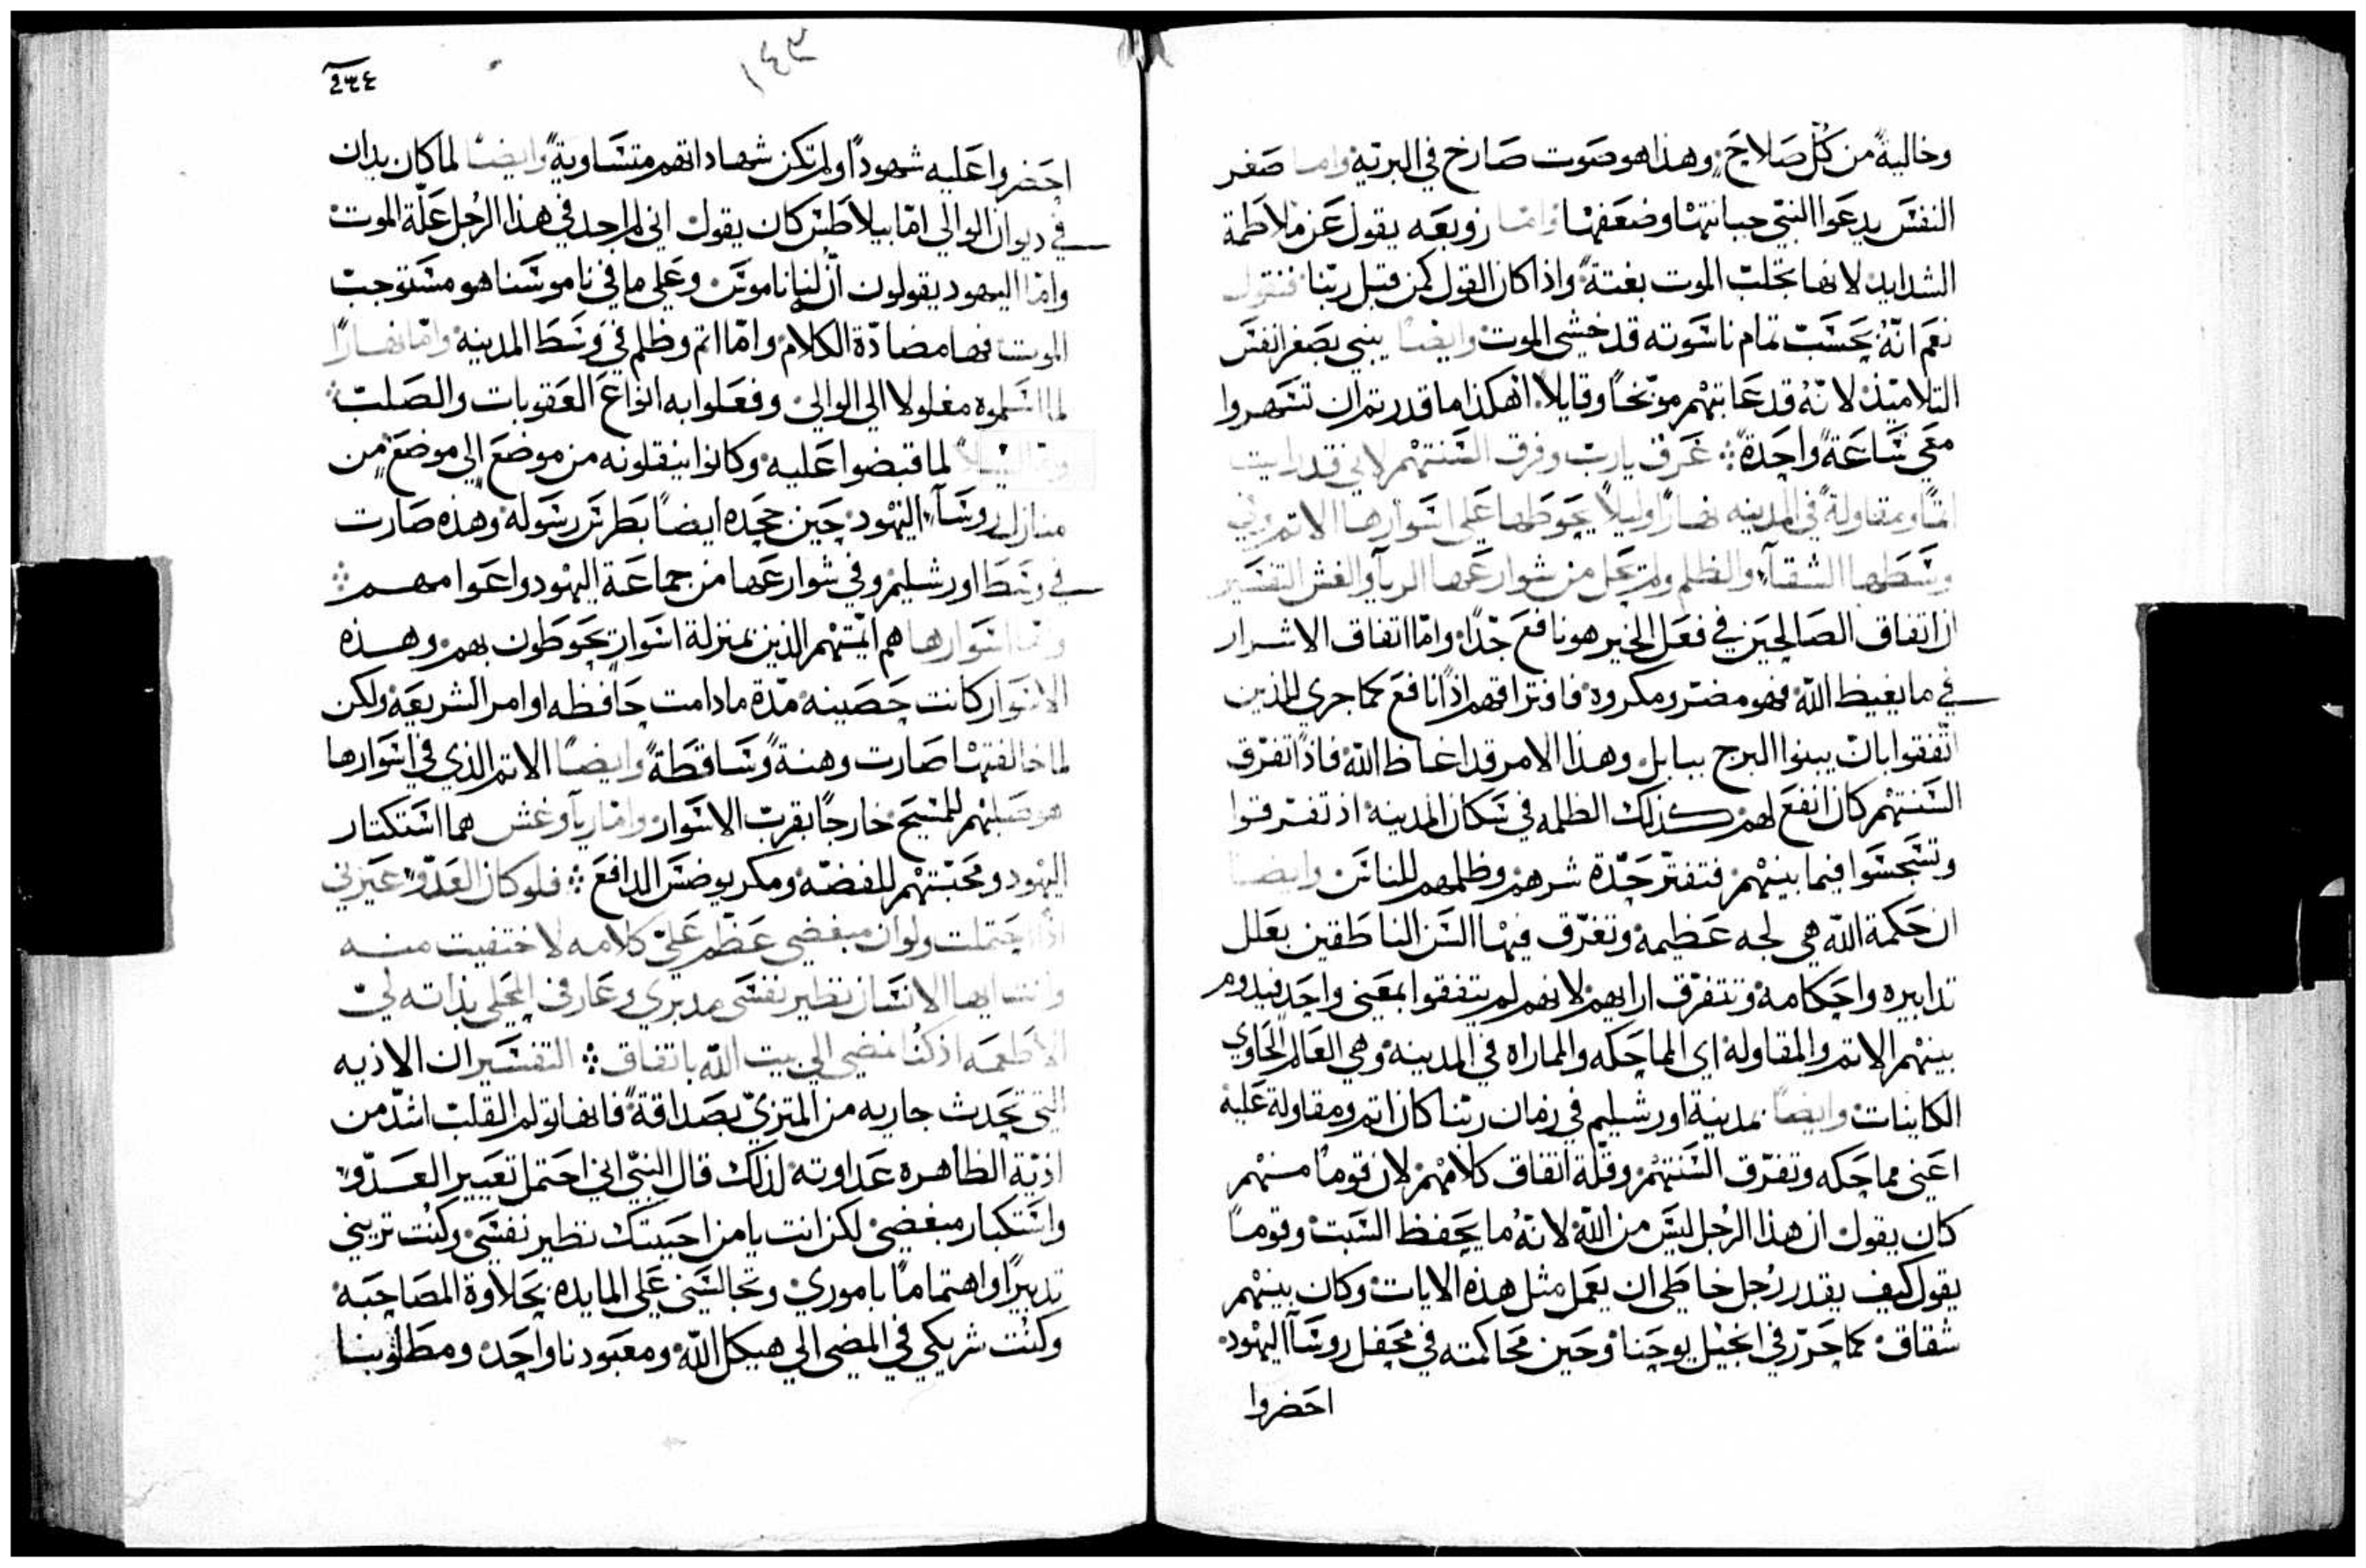 وخاليةً من كُلّ صَلاحَ. وهذا هو صَوت صَارخ في البريّه وامـا صَغر
النفسَ يدعَوا النبيّ جبانتها وضعَفها وامّا زوبعَه يقول عَن ملاطمة
الشدايد لانها تجلب الموت بغتةً واذا كان القول كمن قبل ربّنا فنقول
نعَم انّهُ بحَسَبّ تمام ناسَوته قد خشي الموت وايضاً يبني بصَغر انفسَ
التلاميذ لانّهُ قد عَاتبهم موبّخاً وقايلاً اهكذا ما قدرتم ان تسَهروا
معَي سَاعَةً واحَدةً ⁘ غَرقّ ياربّ وفرق السَنتهم لاني قد رايت
اثماً ومقاولةً في المدينه نهاراً وليلاً يحَوطها عَلى اسَوارها الاتم وفي
وسَطها الشقآء والظلم ولم يخل من شوارعَها الريآ والغش التفسَير
ان اتفاق الصَالحَين في فعَل الخير هو نافعَ جّدًا وامّا اتفاق الاشرار
في ما يغيظ اللّه فهو مضّر ومكروه فافتراقهم اذاً نافعَ كما جري للذين
اتّفقوا بان يبنوا البرج ببابل وهذا الامر قد اغاظ اللّه فاذاً تفرّق
السَنتهم كان انفعَ لهم كذلك الظلمه في سَكان المدينه اذ تفرقوا
وتسَجسَوا فيما بينهم فتفتّر حَدّة شرهم وظلمهم للناسَ وايضاً
ان حَكمة اللّه هي لجه عَظيمة وتغرّق فيها السَن الناطقين بعَلل
تدابيره واحَكامه وتتفرّق ارايهم لانهم لم يتفقوا بمعَني واحَد فيدوم
بينهم الاتم والمقاوله اي المماحَكه والمماراه في المدينه وهي العَالم الحَاوي
الكاينات وايضاً بمدينة اورشليم في زمان ربّنا كان اتم ومقاولة عَليه
اعَني مماحَكه وتفرّق السَنتهم وقلّة اتفاق كلامهم لان قوماً منهم
كان يقول ان هذا الرجُل ليسَ من اللّه لانّهُ ما يحَفظ السَبت وقوماً
يقول كيف يقدر رجُل خاطي ان يعَمل مثل هذه الايات وكان بينهم
شقاق كما حَرّر في انجيل يوحَنا وحَين محَاكمته في محَفل روسَآ اليهود
احَضروا
١٤٣
احَضروا عَليه شهوداً ولم تكن شهاداتهم متسَاويةً وايضاً لما كان يدان
في ديوان الوالي امّا بيلاطسَ كان يقول اني لم اجد في هذا الرجُل عَلّة الموت
وامّا اليهود يقولون انّ لنا ناموسَ وعَلي ما في ناموسَنا هو مسَتوجبّ
الموت فها مضادّة الكلام وامّا اتم وظلم في وسَط المدينه وامّا نهاراً
لما اسَلموه مغلولا الي الوالي وفعَلوا به انواعَ العَقوبات والصَلبّ ⁘
وامّا ليلاً لما قبضوا عَليه وكانوا ينقلونه من موضعَ الي موضعَ من
منازل روسَآء اليهود حَين جحَده ايضاً بطرسَ رسَوله وهذه صَارت
في وسَط اورشليم وفي شوارعَها من جماعَة اليهود واعَوامهم ⁘
وامّا اسَوارها هم ايمّتهم الذين بمنزلة اسَوار يحَوطون بهم وهذه
الاسَوار كانت حَصَينه مدّة ما دامت حَافظه اوامر الشريعَه ولكن
لما خالفتها صَارت وهنةً وسَاقطةً وايضاً الاتم الذي في اسَوارها
هو صَلبهم للمسَيحَ خارجاً بقرب الاسَوار وامّا ريآ وغش هما اسَتكتار
اليهود ومحَبّتهم للفضّه ومكر يوضسَ الدافعَ ⁘ فلو كان العَدّو عَيّرني
اذاً احَتملت ولو ان مبغضي عَظّم عَليّ كلامه لاختفيت منه
وانت ايها الانسَان نظير نفسَي مدبري وعَارفي المحَلي بذاته ليّ
الاطعَمه اذ كنُا نمضي الي بيت اللّه باتفاق ⁘ التفسَير ان الاذيه
التي تحَدث جاريه من المتزيّ بصَداقةً فانها تولم القلبّ اشدّ من
اذيّة الظاهره عَداوته لذلك قال النبيّ اني احَتمل تعَيير العَدّو
واسَتكبار مبغضي لكن انت يا من احَببتك نظير نفسَي وكنُت تريني
تدبيراً واهتماماً باموري وتجالسَني عَلي المايده بحَلاوة المصَاحَبه
وكنُت شريكي في المضي الي هيكل اللّه ومعَبودنا واحَد ومطلوبنا